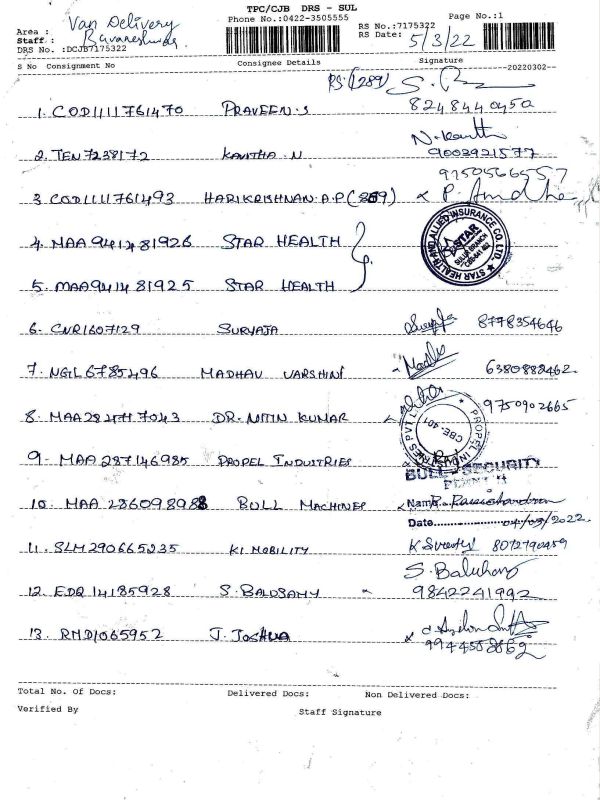 TPC/CJB DRS - SUL
Phone No.:0422-3505555
Page No.:1
Area : Van Delivery
Staff : Bavaneshwar
DRS No. :DCJB7175322
RS No.:7175322
RS Date: 5/3/22
S No Consignment No Consignee Details Signature
20220302
RS: (289)
1. COD1111761470 PRAVEEN.S 8248440450
2. TEN7238172 KAVITHA.N N.Kavitha 9003921577
9750566557
3. COD1111761493 HARIKRISHNAN.A.P(269)
4. MAA941481926 STAR HEALTH
5. MAA941481925 STAR HEALTH
STAR HEALTH AND ALLIED INSURANCE CO. LTD.
STAR
SULUR BRANCH
6. CNR1607129 SURYAJA 8778354646
7. NGIL6785496 MADHAV VARSHINI 6380882462
8. MAA284117043 DR. NITIN KUMAR 9750902665
PROPEL INDUSTRIES PVT LTD
CBE. 401
9. MAA287146985 PROPEL INDUSTRIES
BULL - SECURITY
10. MAA 286098988 BULL MACHINES Name R. Ramachandran
Date 04/03/2022
11. SLM290665235 KI MOBILITY 8072790459
12. EDQ 14185928 S. BALUSAMY S. Balu 9842241992
13. RMD1065952 J. JOSHUA 9944558862
Total No. Of Docs: Delivered Docs: Non Delivered Docs:
Verified By Staff Signature